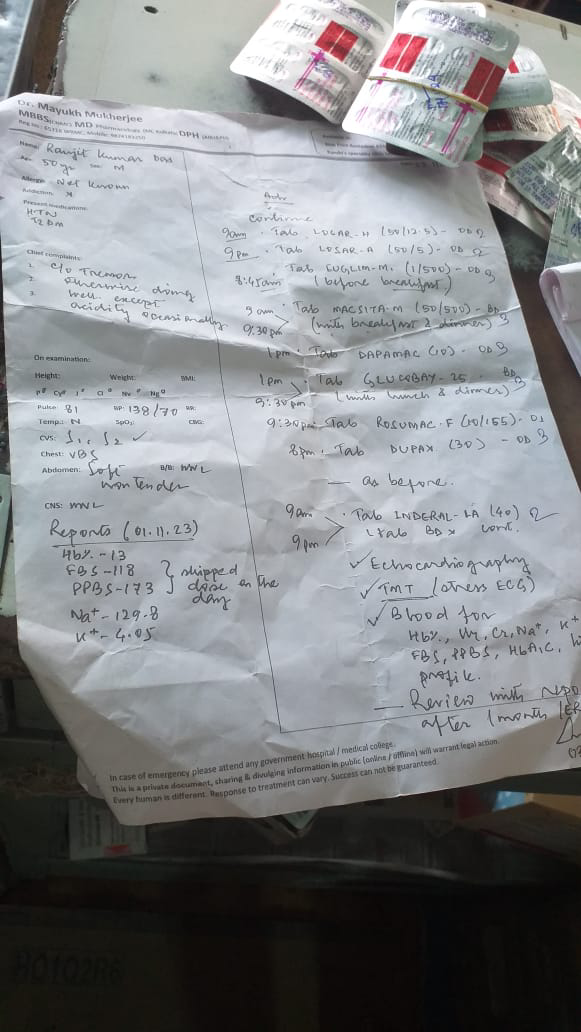 Dr. Mayukh Mukherjee
MBBS MD DPH
Name: Ranjit Kumar Das
50 yr Sex: M
Allergy: Not known
Addiction: x
Present medications:
HTN
T2DM
Chief complaints:
1. c/o Tremor
2. otherwise doing
3. well except
acidity occasionally
On examination:
Height: Weight: BMI:
Pulse: 81 BP: 138/70 RR:
Temp.: N SpO2: CBG:
CVS: S1, S2 ✓
Chest: VBS
Abdomen: Soft B/B: WNL
non tender
CNS: WNL
Reports (01.11.23)
Hb% - 13
FBS - 118
PPBS - 173 } skipped dose on the day
Na+ - 129.8
K+ - 4.05
Adv
Continue
9am · Tab LOSAR-H (50/12.5) - OD
9pm · Tab LOSAR-A (50/5) - OD
8:45am Tab EUGLIM-M (1/500) - OD
(before breakfast)
9am · Tab MACSITA-M (50/500) - BD
9:30pm (with breakfast & dinner)
1pm · Tab DAPAMAC (10) - OD
1pm · Tab GLUCOBAY-25 - BD
9:30pm (with lunch & dinner)
9:30pm · Tab ROSUMAC-F (10/155) - OD
8pm · Tab DUPAX (30) - OD
— as before.
9am · Tab INDERAL-LA (40)
9pm 1 tab BD x cont.
✓ Echocardiography
✓ TMT (stress ECG)
✓ Blood for
Hb%, Ur, Cr, Na+, K+
FBS, PPBS, HbA1C,
profile.
— Review with
after 1 month
In case of emergency please attend any government hospital / medical college.
This is a private document, sharing & divulging information in public (online / offline) will warrant legal action.
Every human is different. Response to treatment can vary. Success can not be guaranteed.